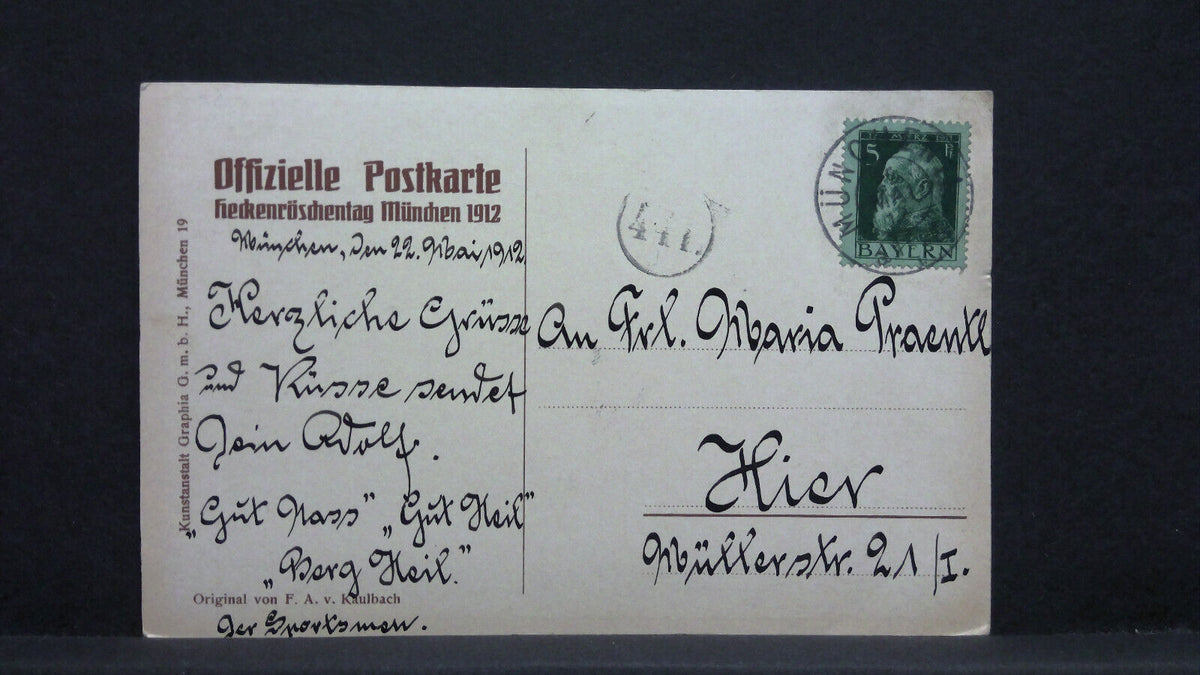 Offizielle Postkarte
Heckenröschentag München 1912
München, den 22. Mai 1912
Herzliche Grüsse
und Küsse sendet
Dein Adolf.
„Gut Nass” „Gut Heil”
„Berg Heil.”
Original von F. A. v. Kaulbach
Der Sportsmen.
Kunstanstalt Graphia G. m. b. H., München 19
441.
MÜNCHEN
5 Pf
BAYERN
An Frl. Maria Praentl
Hier
Müllerstr. 21/I.